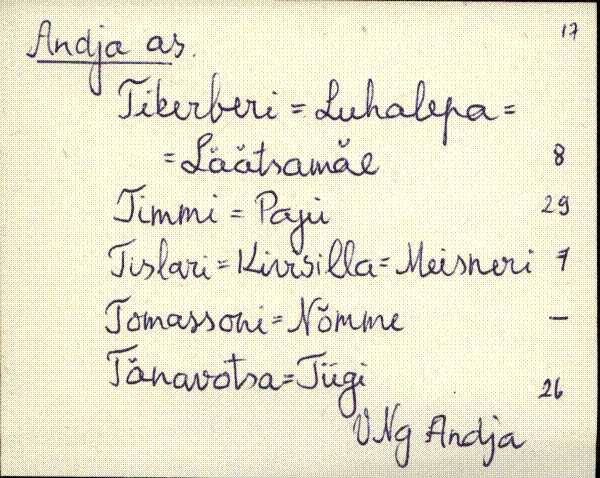 Andja as. 17
Tikerberi = Luhalepa =
= Läätsamäe 8
Timmi = Paju 29
Tislari = Kivisilla = Meisneri 7
Tomassoni = Nõmme —
Tänavotsa = Tiigi 26
VNg Andja